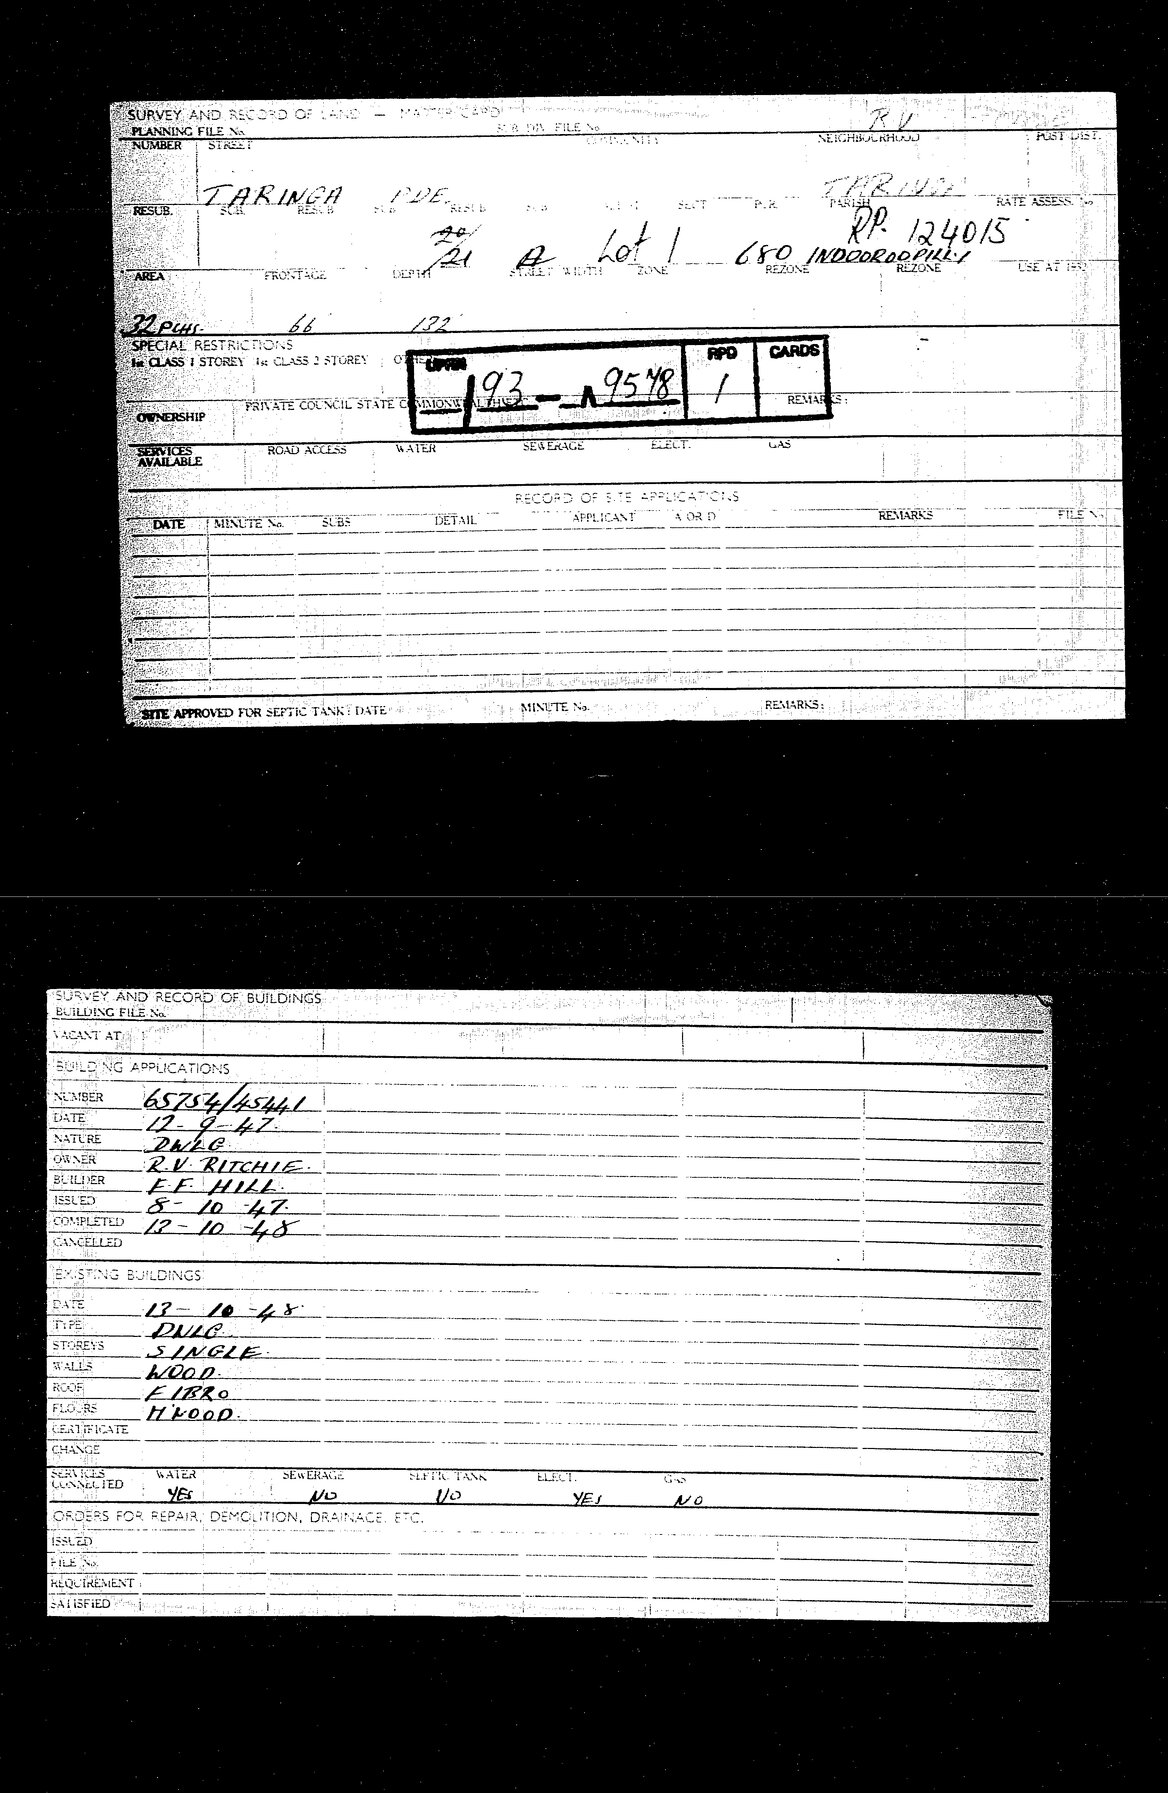 SURVEY AND RECORD OF LAND — MASTER CARD
PLANNING FILE No. SUB DIV. FILE No. RV
NUMBER STREET COMMUNITY NEIGHBOURHOOD POST DIST.
TARINGA PDE. TARINGA
RESUB. SUB. RESUB SUB RESUB SUB SECT PARISH RATE ASSESS. No
RP. 124015
20/
/21 A Lot 1 680 INDOOROOPILLY
AREA FRONTAGE DEPTH STREET WIDTH ZONE REZONE REZONE USE AT 1952
32 PCHS. 66 132
SPECIAL RESTRICTIONS
1st CLASS 1 STOREY 1st CLASS 2 STOREY
UPRN RPD CARDS
193 — 9578 1
OWNERSHIP PRIVATE COUNCIL STATE COMMONWEALTH REMARKS:
SERVICES AVAILABLE ROAD ACCESS WATER SEWERAGE ELECT. GAS
RECORD OF SITE APPLICATIONS
DATE MINUTE No. SUBS DETAIL APPLICANT A OR D REMARKS FILE No
SITE APPROVED FOR SEPTIC TANK: DATE MINUTE No. REMARKS:
SURVEY AND RECORD OF BUILDINGS
BUILDING FILE No.
VACANT AT
BUILDING APPLICATIONS
NUMBER 65754/45441
DATE 12-9-47
NATURE DWLG
OWNER R.V. RITCHIE.
BUILDER F.F. HILL.
ISSUED 8-10-47.
COMPLETED 13-10-48
CANCELLED
EXISTING BUILDINGS
DATE 13-10-48.
TYPE DWLG.
STOREYS SINGLE.
WALLS WOOD.
ROOF FIBRO
FLOORS H'WOOD.
CERTIFICATE
CHANGE
SERVICES CONNECTED WATER SEWERAGE SEPTIC TANK ELECT. GAS
YES NO NO YES NO
ORDERS FOR REPAIR, DEMOLITION, DRAINAGE, ETC.
ISSUED
FILE No.
REQUIREMENT
SATISFIED